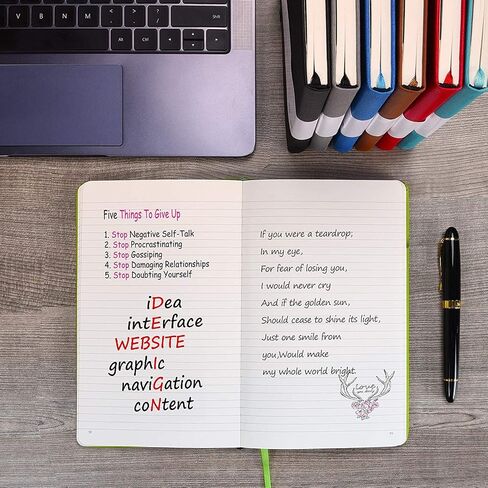 Five Things To Give Up
1. Stop Negative Self-Talk
2. Stop Procrastinating
3. Stop Gossiping
4. Stop Damaging Relationships
5. Stop Doubting Yourself
iDea
intErface
WEBSITE
graphIc
naviGation
coNtent
If you were a teardrop;
In my eye,
For fear of losing you,
I would never cry
And if the golden sun,
Should cease to shine its light,
Just one smile from
you,Would make
my whole world bright.
Love